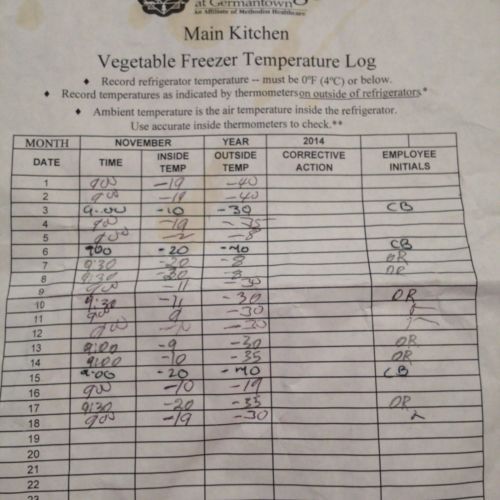 at Germantown
An Affiliate of Methodist Healthcare
Main Kitchen
Vegetable Freezer Temperature Log
♦ Record refrigerator temperature -- must be 0°F (4°C) or below.
♦ Record temperatures as indicated by thermometers on outside of refrigerators.*
♦ Ambient temperature is the air temperature inside the refrigerator.
Use accurate inside thermometers to check.**
MONTH NOVEMBER YEAR 2014
DATE TIME INSIDE TEMP OUTSIDE TEMP CORRECTIVE ACTION EMPLOYEE INITIALS
1 900 -19 -40
2 900 -19 -40
3 9:00 -10 -30 CB
4 900 -19
5 900
6 900 -20 -40 CB
7 9:30 -20 -8 OR
8 9:30 -20 -8 OR
9 900 -11 -30
10 9:30 -30 OR
11 900 9 -30
12 900 -30
13 9:00 -9 -30 OR
14 9:00 -10 -35 OR
15 9:00 -20 -40 CB
16 900 -10 -19
17 9:30 -20 -35 OR
18 900 -19 -30
19
20
21
22
23